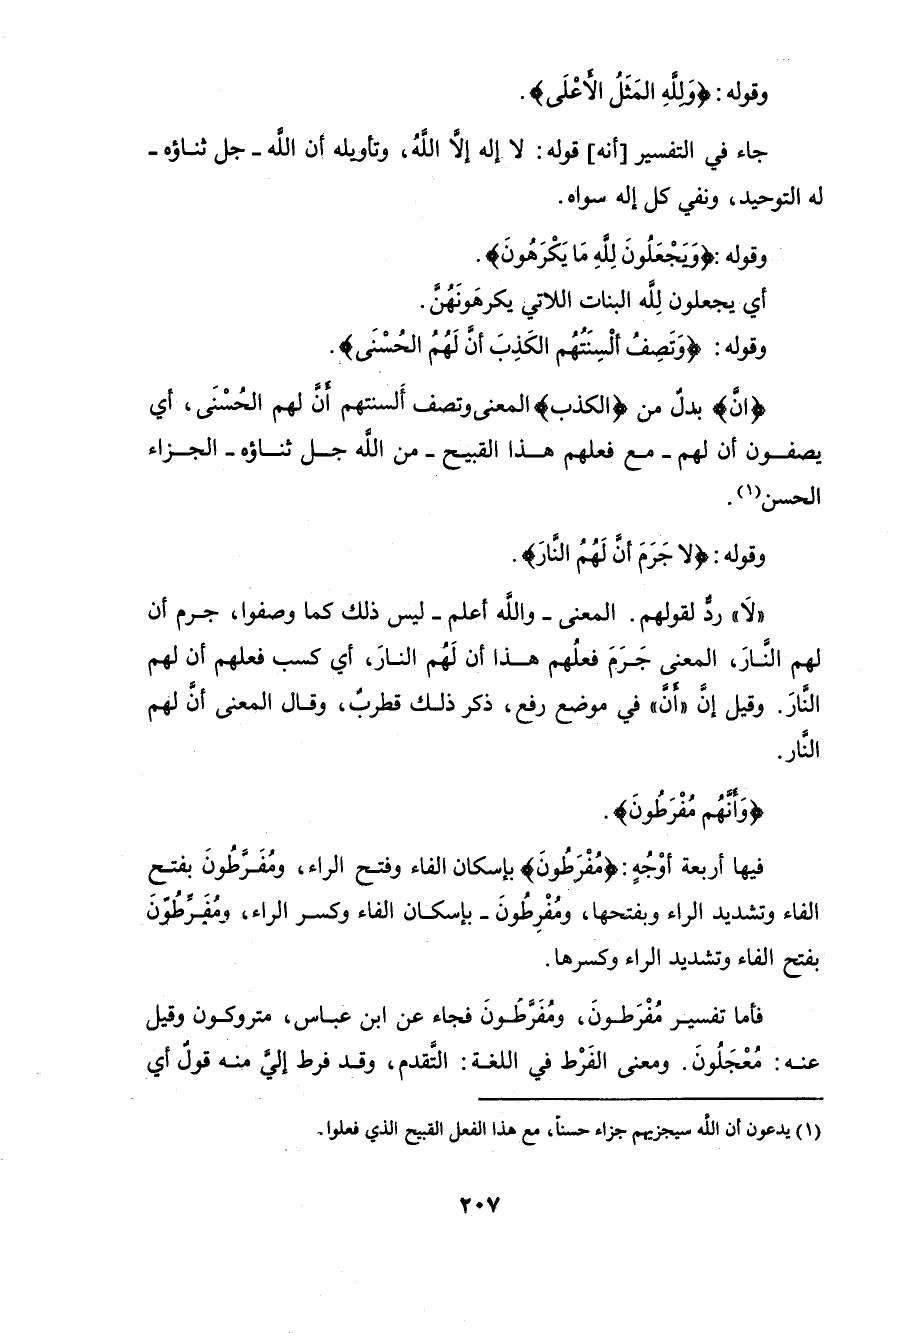 وقوله : ﴿وَلِلَّهِ المَثَلُ الأَعْلَى﴾ .
جاء في التفسير [أنه] قوله : لا إله إلَّا اللَّهُ، وتأويله أن اللَّه ـ جل ثناؤه ـ
له التوحيد، ونفي كل إله سواه.
وقوله :﴿وَيَجْعَلُونَ لِلَّهِ مَا يَكْرَهُونَ﴾ .
أي يجعلون لِلَّه البنات اللاتي يكرهَونَهُنَّ .
وقوله : ﴿وَتَصِفُ ألْسِنَتُهُم الكَذِبَ أنَّ لَهُمُ الحُسْنَى﴾ .
﴿انَّ﴾ بدلٌ من ﴿الكذب﴾ المعنى وتصف ألسنتهم أَنَّ لهم الحُسْنَى، أي
يصفون أن لهم ـ مع فعلهم هذا القبيح ـ من اللَّه جل ثناؤه ـ الجزاء
الحسن(١) .
وقوله : ﴿لا جَرَمَ أنَّ لَهُمُ النَّارَ﴾ .
«لَا» ردٌّ لقولهم . المعنى ـ واللَّه أعلم ـ ليس ذلك كما وصفوا، جرم أن
لهم النَّارَ، المعنى جَرَمَ فعلُهم هذا أن لَهُم النارَ، أي كسب فعلهم أن لهم
النَّارَ . وقيل إنَّ «أَنَّ» في موضع رفع، ذكر ذلك قطربٌ، وقال المعنى أنَّ لهم
النَّار .
﴿وَأَنَّهُم مُفْرَطُونَ﴾ .
فيها أربعة أوْجُهٍ : ﴿مُفْرَطُونَ﴾ بإسكان الفاء وفتح الراء، ومُفَرَّطُونَ بفتح
الفاء وتشديد الراء وبفتحها، ومُفْرِطُونَ ـ بإسكان الفاء وكسر الراء، ومُفَرِّطُوّنَ
بفتح الفاء وتشديد الراء وكسرها .
فأما تفسير مُفْرَطونَ، ومُفَرَّطُونَ فجاء عن ابن عباس، متروكون وقيل
عنه : مُعْجَلُونَ . ومعنى الفَرْط في اللغة : التَّقدم، وقد فرط إليَّ منه قولٌ أي
(١) يدعون أن اللَّه سيجزيهم جزاء حسناً، مع هذا الفعل القبيح الذي فعلوا.
٢٠٧